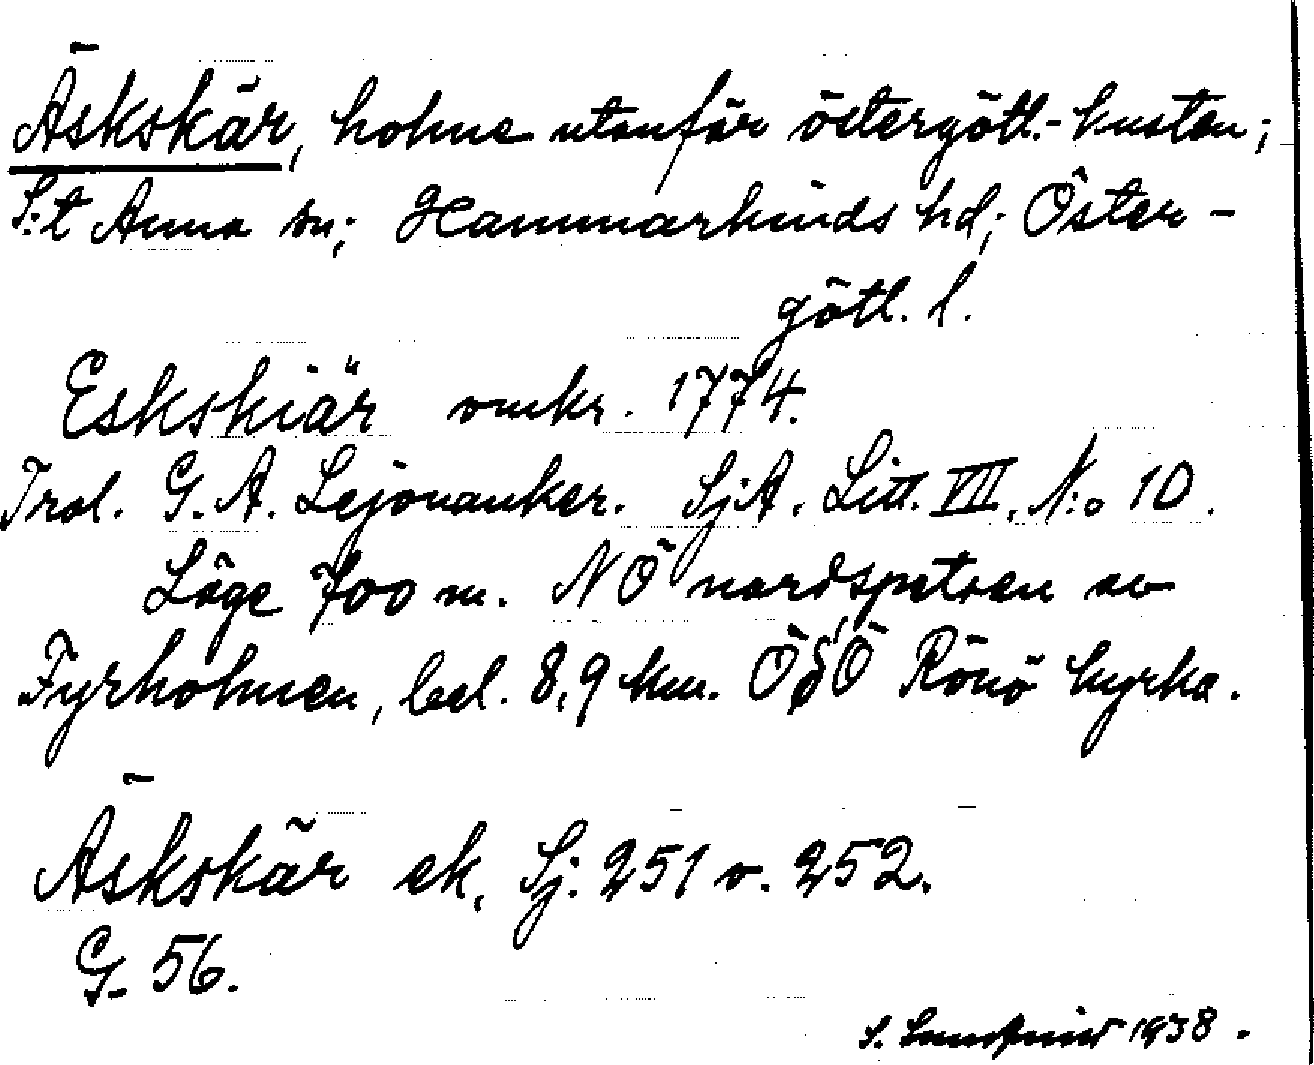 Äskskär, holme utanför östergötl.-kusten;
S:t Anna sn; Hammarkinds hd; Öster-
götl. l.
Eskskiär omkr. 1774.
Trol. G. A. Lejonanker. SjA. Litt. VII. N:o 10.
Läge 700 m. NÖ nordspetsen av
Fyrholmen, bel. 8,9 km. ÖSÖ Rönö kyrka.
Äskskär ek. Sj. 251 o. 252.
G. 56.
S. 1938.